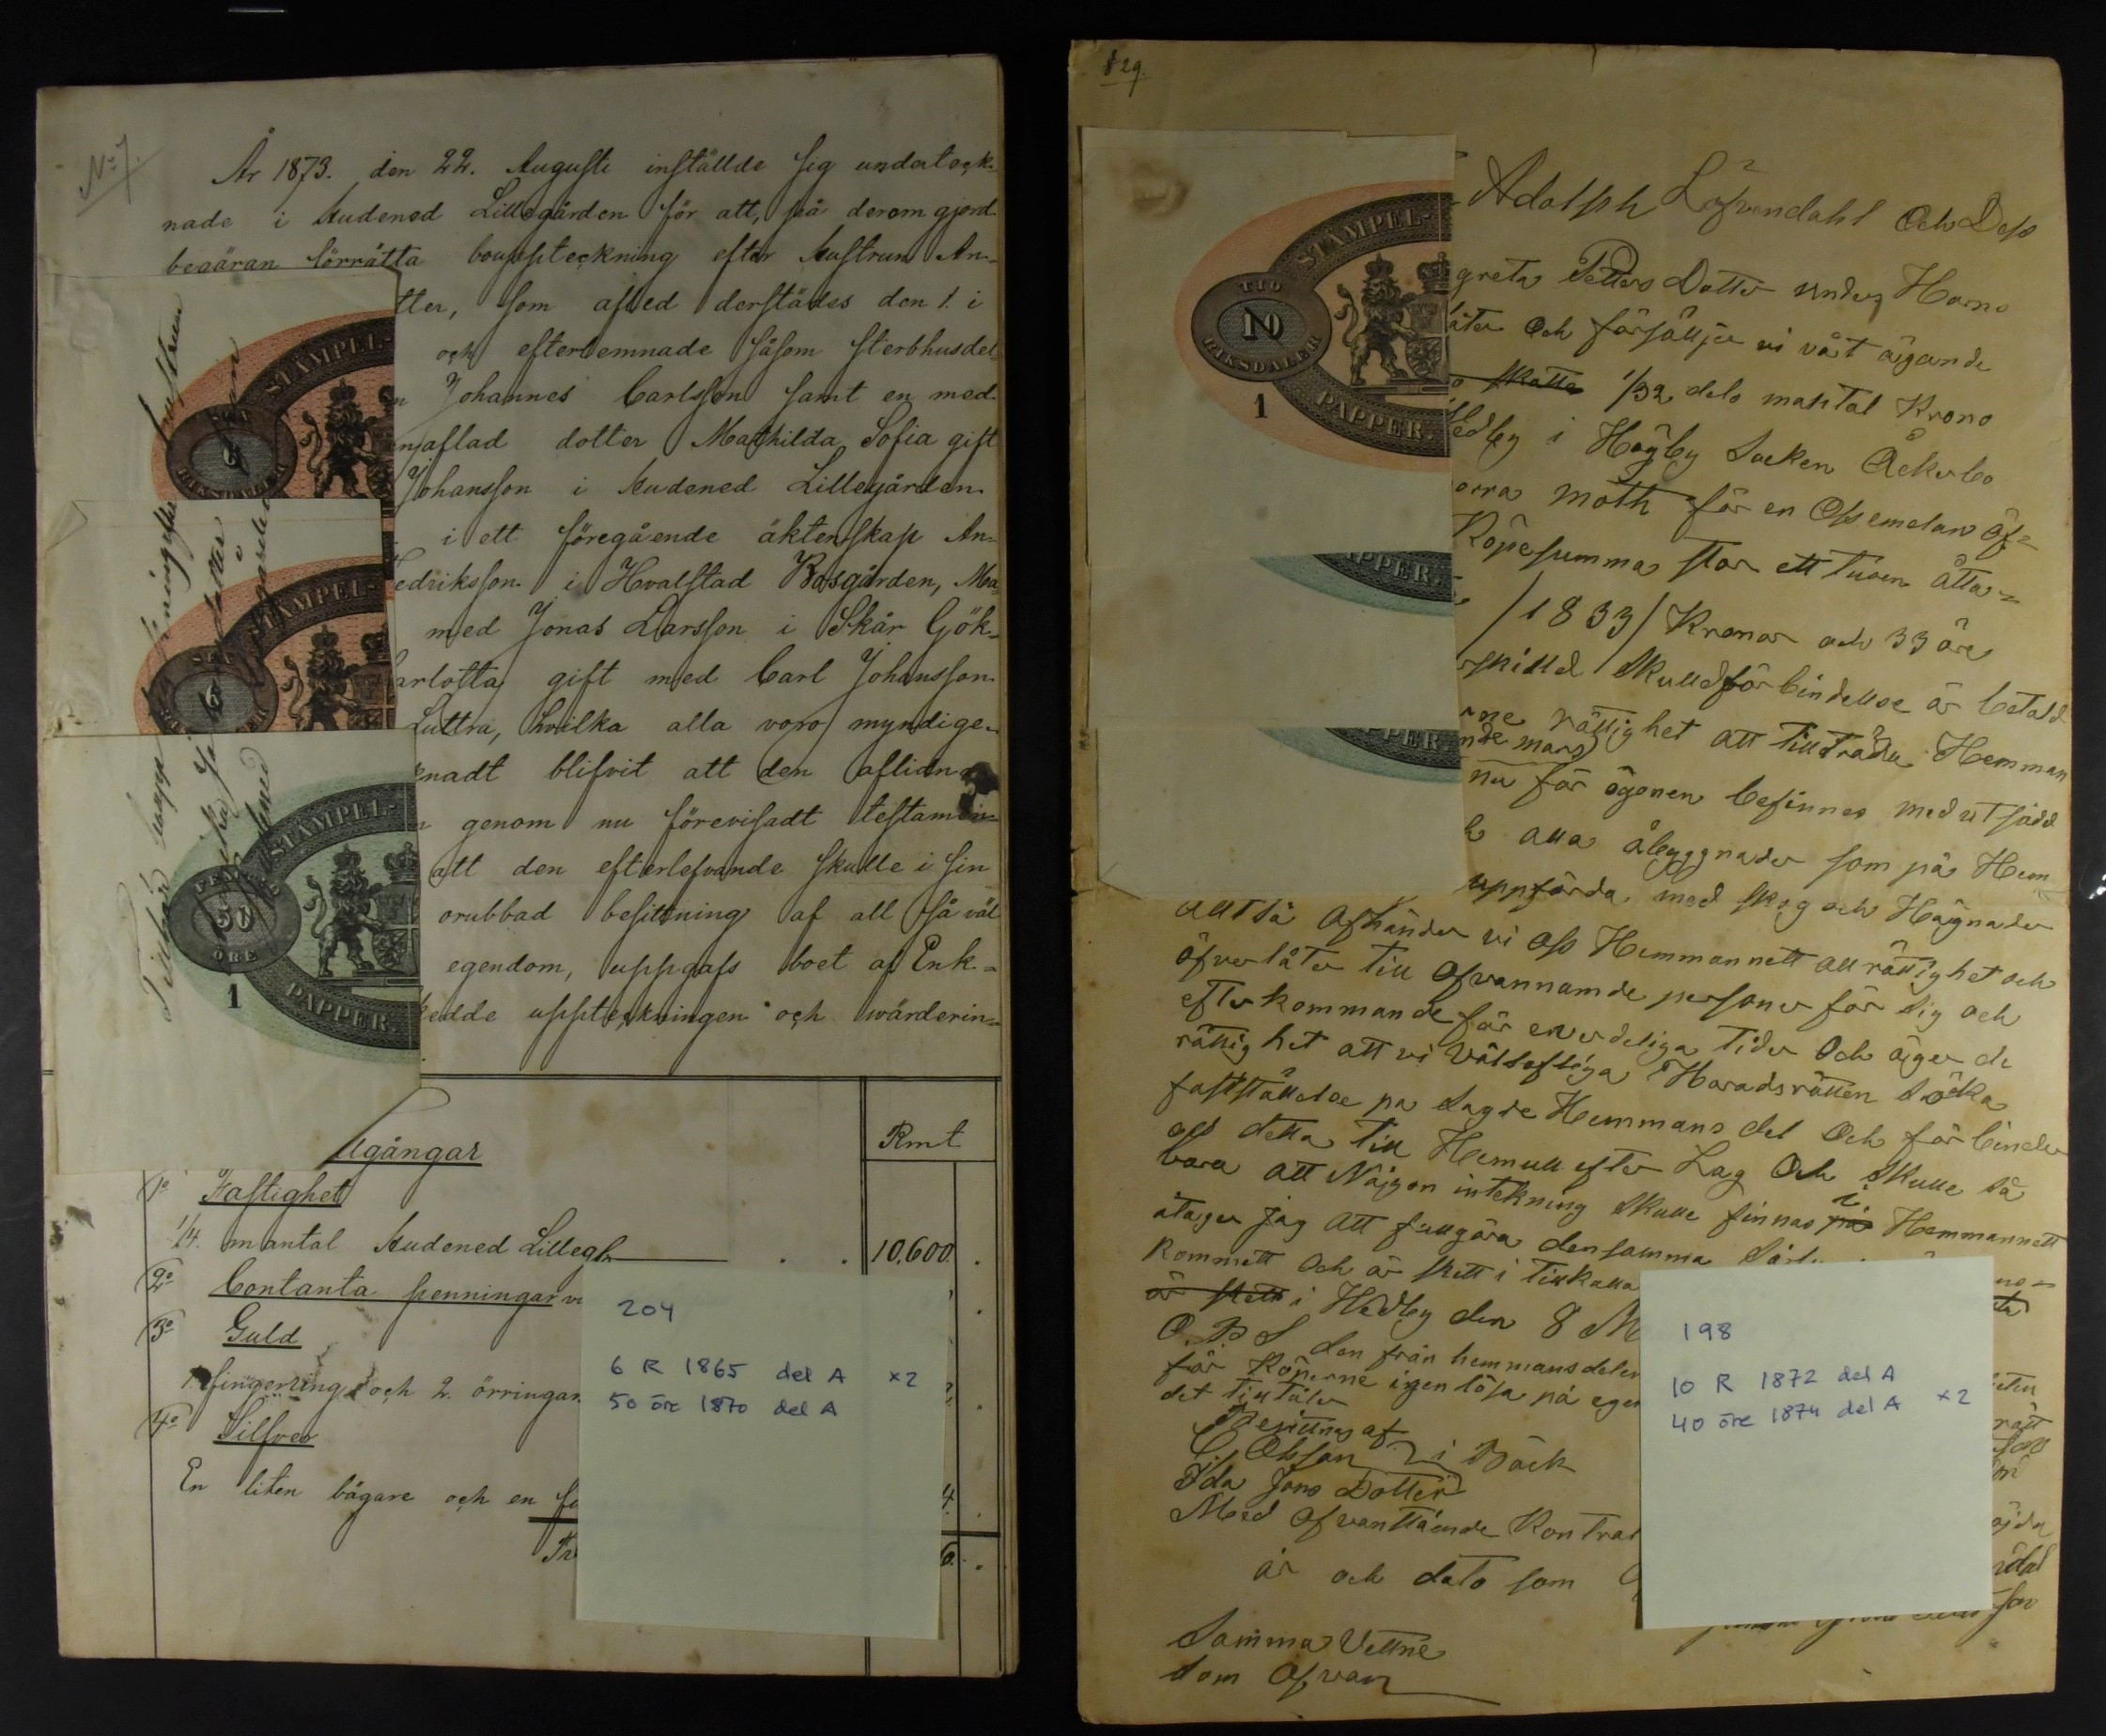 No 7.
År 1873. den 22. Augusti inställde sig underteck-
nade i Kudened Lillegården för att, på derom gjord
begäran förrätta bouppteckning efter hustrun An-
tter, som afled derstädes den 1. i
och efterlemnade såsom sterbhusdel
Johannes Carlsson samt en med
aflad dotter Mathilda Sofia gift
Johansson i Kudened Lillegården.
i ett föregående äktenskap An-
edriksson i Hvalstad Bosgården, Ma-
med Jonas Larsson i Skår Gök-
arlotta gift med Carl Johansson
Luttra, hvilka alla voro myndige.
knadt blifvit att den aflidna
genom nu förevisadt testamen-
att den efterlefvande skulle i sin
orubbad besittning af all så väl
egendom, uppgafs boet af Enk-
kedde uppteckningen och wärderin-
STÄMPEL-
SEX
6
RIKSDALER
STÄMPEL-
SEX
6
STÄMPEL-
FEMTIO
50
ÖRE
1
PAPPER.
lgångar
Rmt
1o Fastighet
1/4. mantal Kudened Lillegh 10,600.
2o Contanta penningar
3o Guld
fingerring och 2. örringar
4o Silfver
En liten bägare och en
204
6 R 1865 del A x2
50 öre 1870 del A
§ 29.
Adolph Löfvendahl Och Dess
greta Petters Dotter under Horns
åter Och försäljer vi vårt ägande
skatte 1/32 dels mantal Krono
edby i Högby Socken Åkerbo
orra moth för en Ossemelan öf=
Köpesumma stor ett tusen åtta=
/1833/ Kronor och 33 öre
rskilld Skulldförbindellse är betald
rättighet att tillträda Hemman
nu för ögonen befinnes med utsådd
alla åbyggnader som på Hem-
uppförda, med skog och Hägnader
alltså Afhänder vi oss Hemmannett all rättighet och
öfverlåter till Ofvannamde personer för sig och
efterkommande för everdeliga tider Och äger de
rättighet att vi Vällofliga Häradsrätten söka
fastställelse på sagde Hemmans del Och förbinder
oss detta till Hemull efter Lag Och Skulle så
vara att Någon intekning Skulle finnas på i Hemmannett
åtager jag att fullgöra densamma
Kommett Och är skett i tillkalla
är skett i Hedby den 8 M
O. B S den från hemmansdelen
för Köperne igen lösa på egen
det tilltäls
Bevittnas af
C, Olsson i Bäck
Ida Jons Dotter
Med Ofvanstående Kontrat
år och dato som
Samma Vettne
som Ofvan
STÄMPEL-
TIO
10
RIKSDALER
1
PAPPER.
PPER.
PER.
198
10 R 1872 del A
40 öre 1874 del A x2